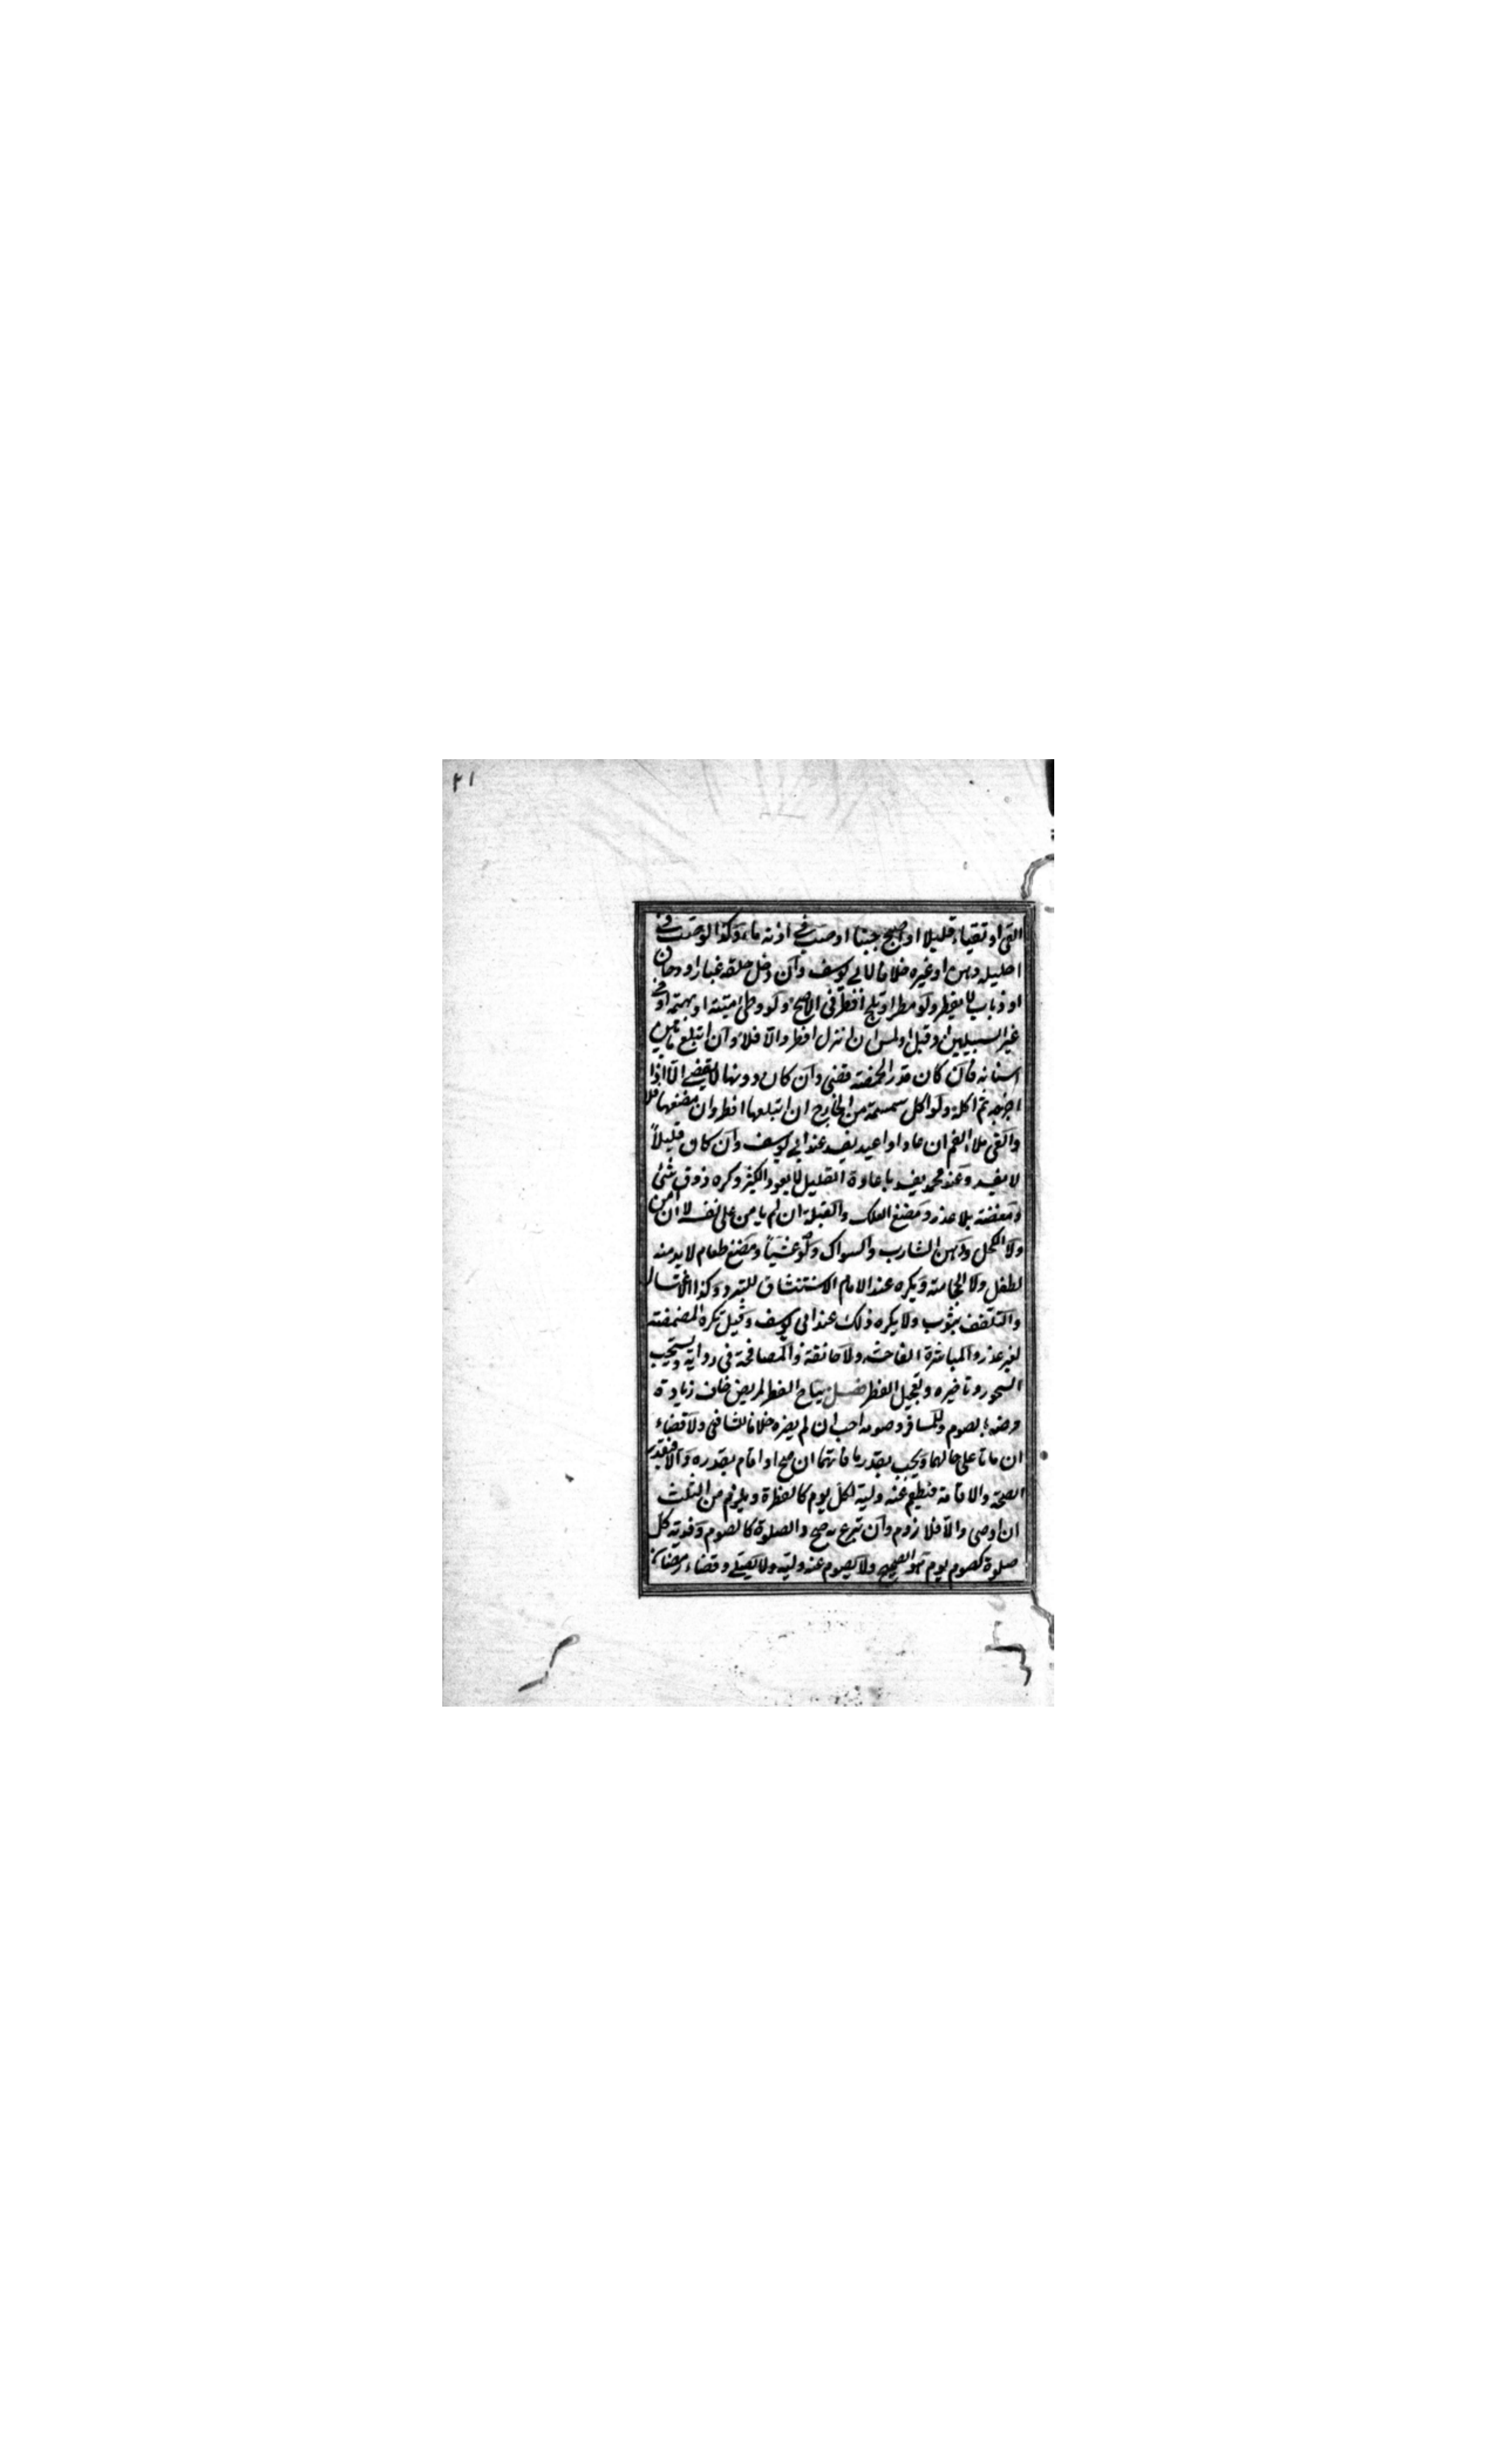 ٢١
القئ او تقياء قليلا او اصبح جنبا او صب فى اذنه ماء وكذا لو صب فى
احليله دهن او غيره خلافا لابى يوسف وان دخل حلقه غبار او دخان
او ذباب لا يفطر ولو مطر او ثلج افطر فى الاصح ولو وطئ ميتة او بهيمة او فى
غير السبيلين او قبل او لمس ان انزل افطر والا فلا وان ابتلع ما بين
اسنانه فان كان قدر الحمصة قضى وان كان دونها لا يقضى الا اذا
اخرجه ثم اكله ولو اكل سمسمة من الخارج ان ابتلعها افطر وان مضغها فلا
والقئ ملاء الفم ان عاد او اعيد يفسد عند ابى يوسف وان كان قليلاً
لا يفسد وعند محمد يفسد باعادة القليل لا بعود الكثير وكره ذوق شئ
ومضغه بلا عذر ومضغ العلك والقبلة ان لم يامن على نفسه لا ان امن
ولا الكحل ودهن الشارب والسواك ولو عشياً ومضغ طعام لا بد منه
لطفل ولا الحجامة ويكره عند الامام الاستنشاق للتبرد وكذا الاغتسال
والتلفف بثوب ولا يكره ذلك عند ابى يوسف وقيل تكره المضمضة
لغير عذر والمباشرة الفاحشة ولا معانقة والمصافحة فى رواية ويستحب
السحور وتاخيره وتعجيل الفطر فصل يباح الفطر لمريض خاف زيادة
مرضه بالصوم وللمسافر وصومه احب ان لم يضره خلافا للشافعى ولا قضاء
ان ماتا على حالهما ويجب بقدر ما فاتهما ان صح او اقام بقدره والا فبقدر
الصحة والاقامة فيطعم عنه وليه لكل يوم كالفطرة ويلزم من الثلث
ان اوصى والا فلا لزوم وان تبرع به صح والصلوة كالصوم وفدية كل
صلوة كصوم يوم هو الصحيح ولا يصوم عنه وليه ولا يصلى وقضاء رمضان